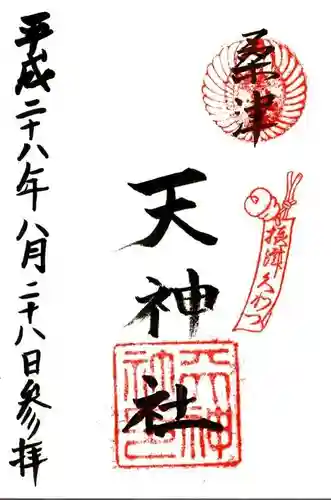 桑津
天神社
平成二十八年八月二十八日参拝
摂津
くわづ
天神